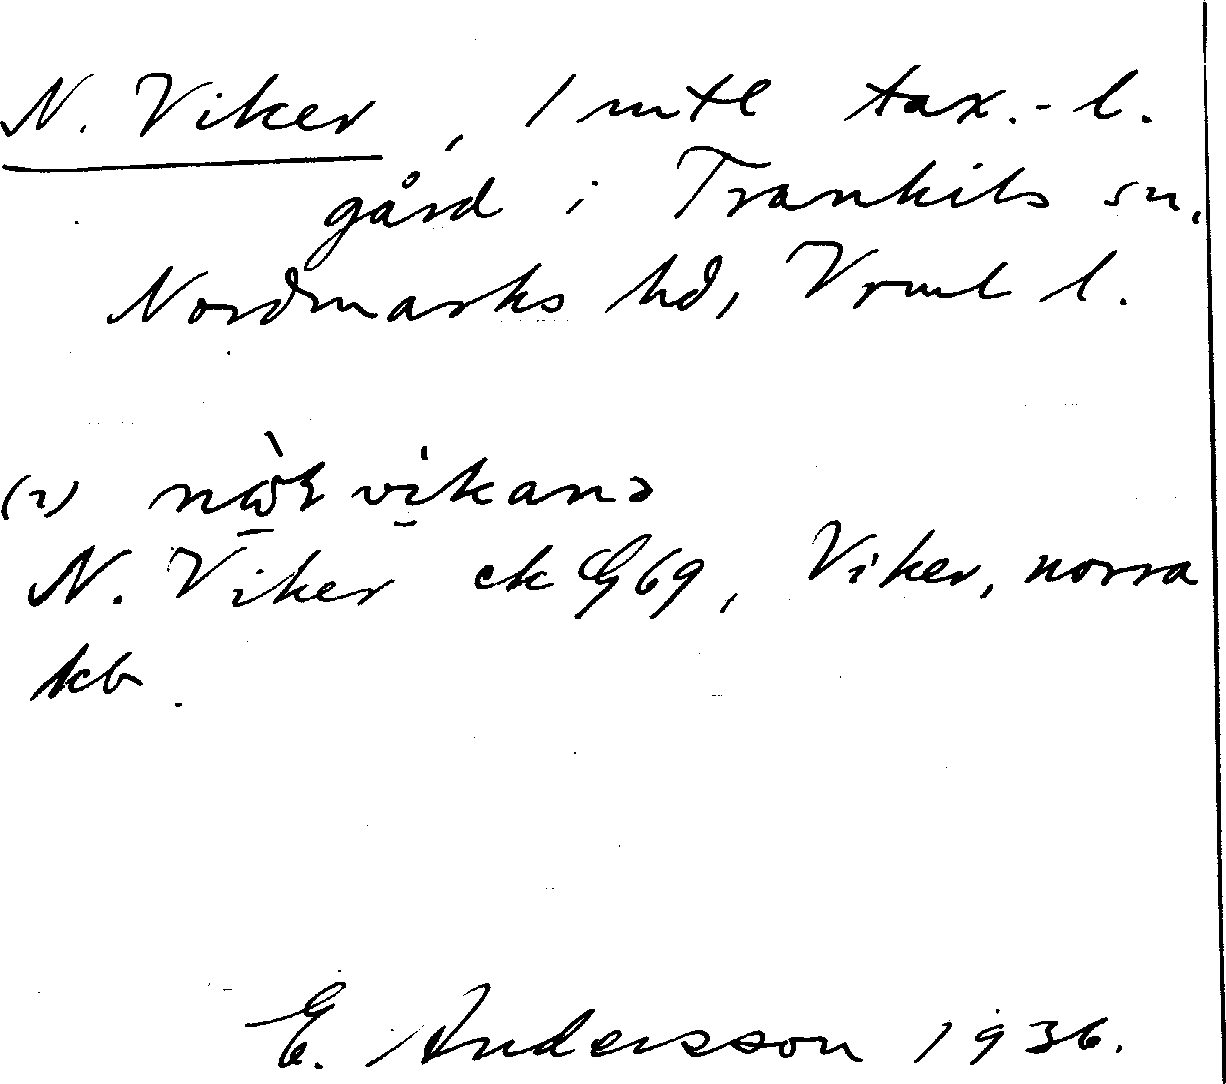 N. Viker, 1 mtl tax.-l.
gård i Trankils sn.
Nordmarks hd, Vrml l.
(2) vikanə
N. Viker ek G69, Viker, norra
kb
E. Andersson 1936.